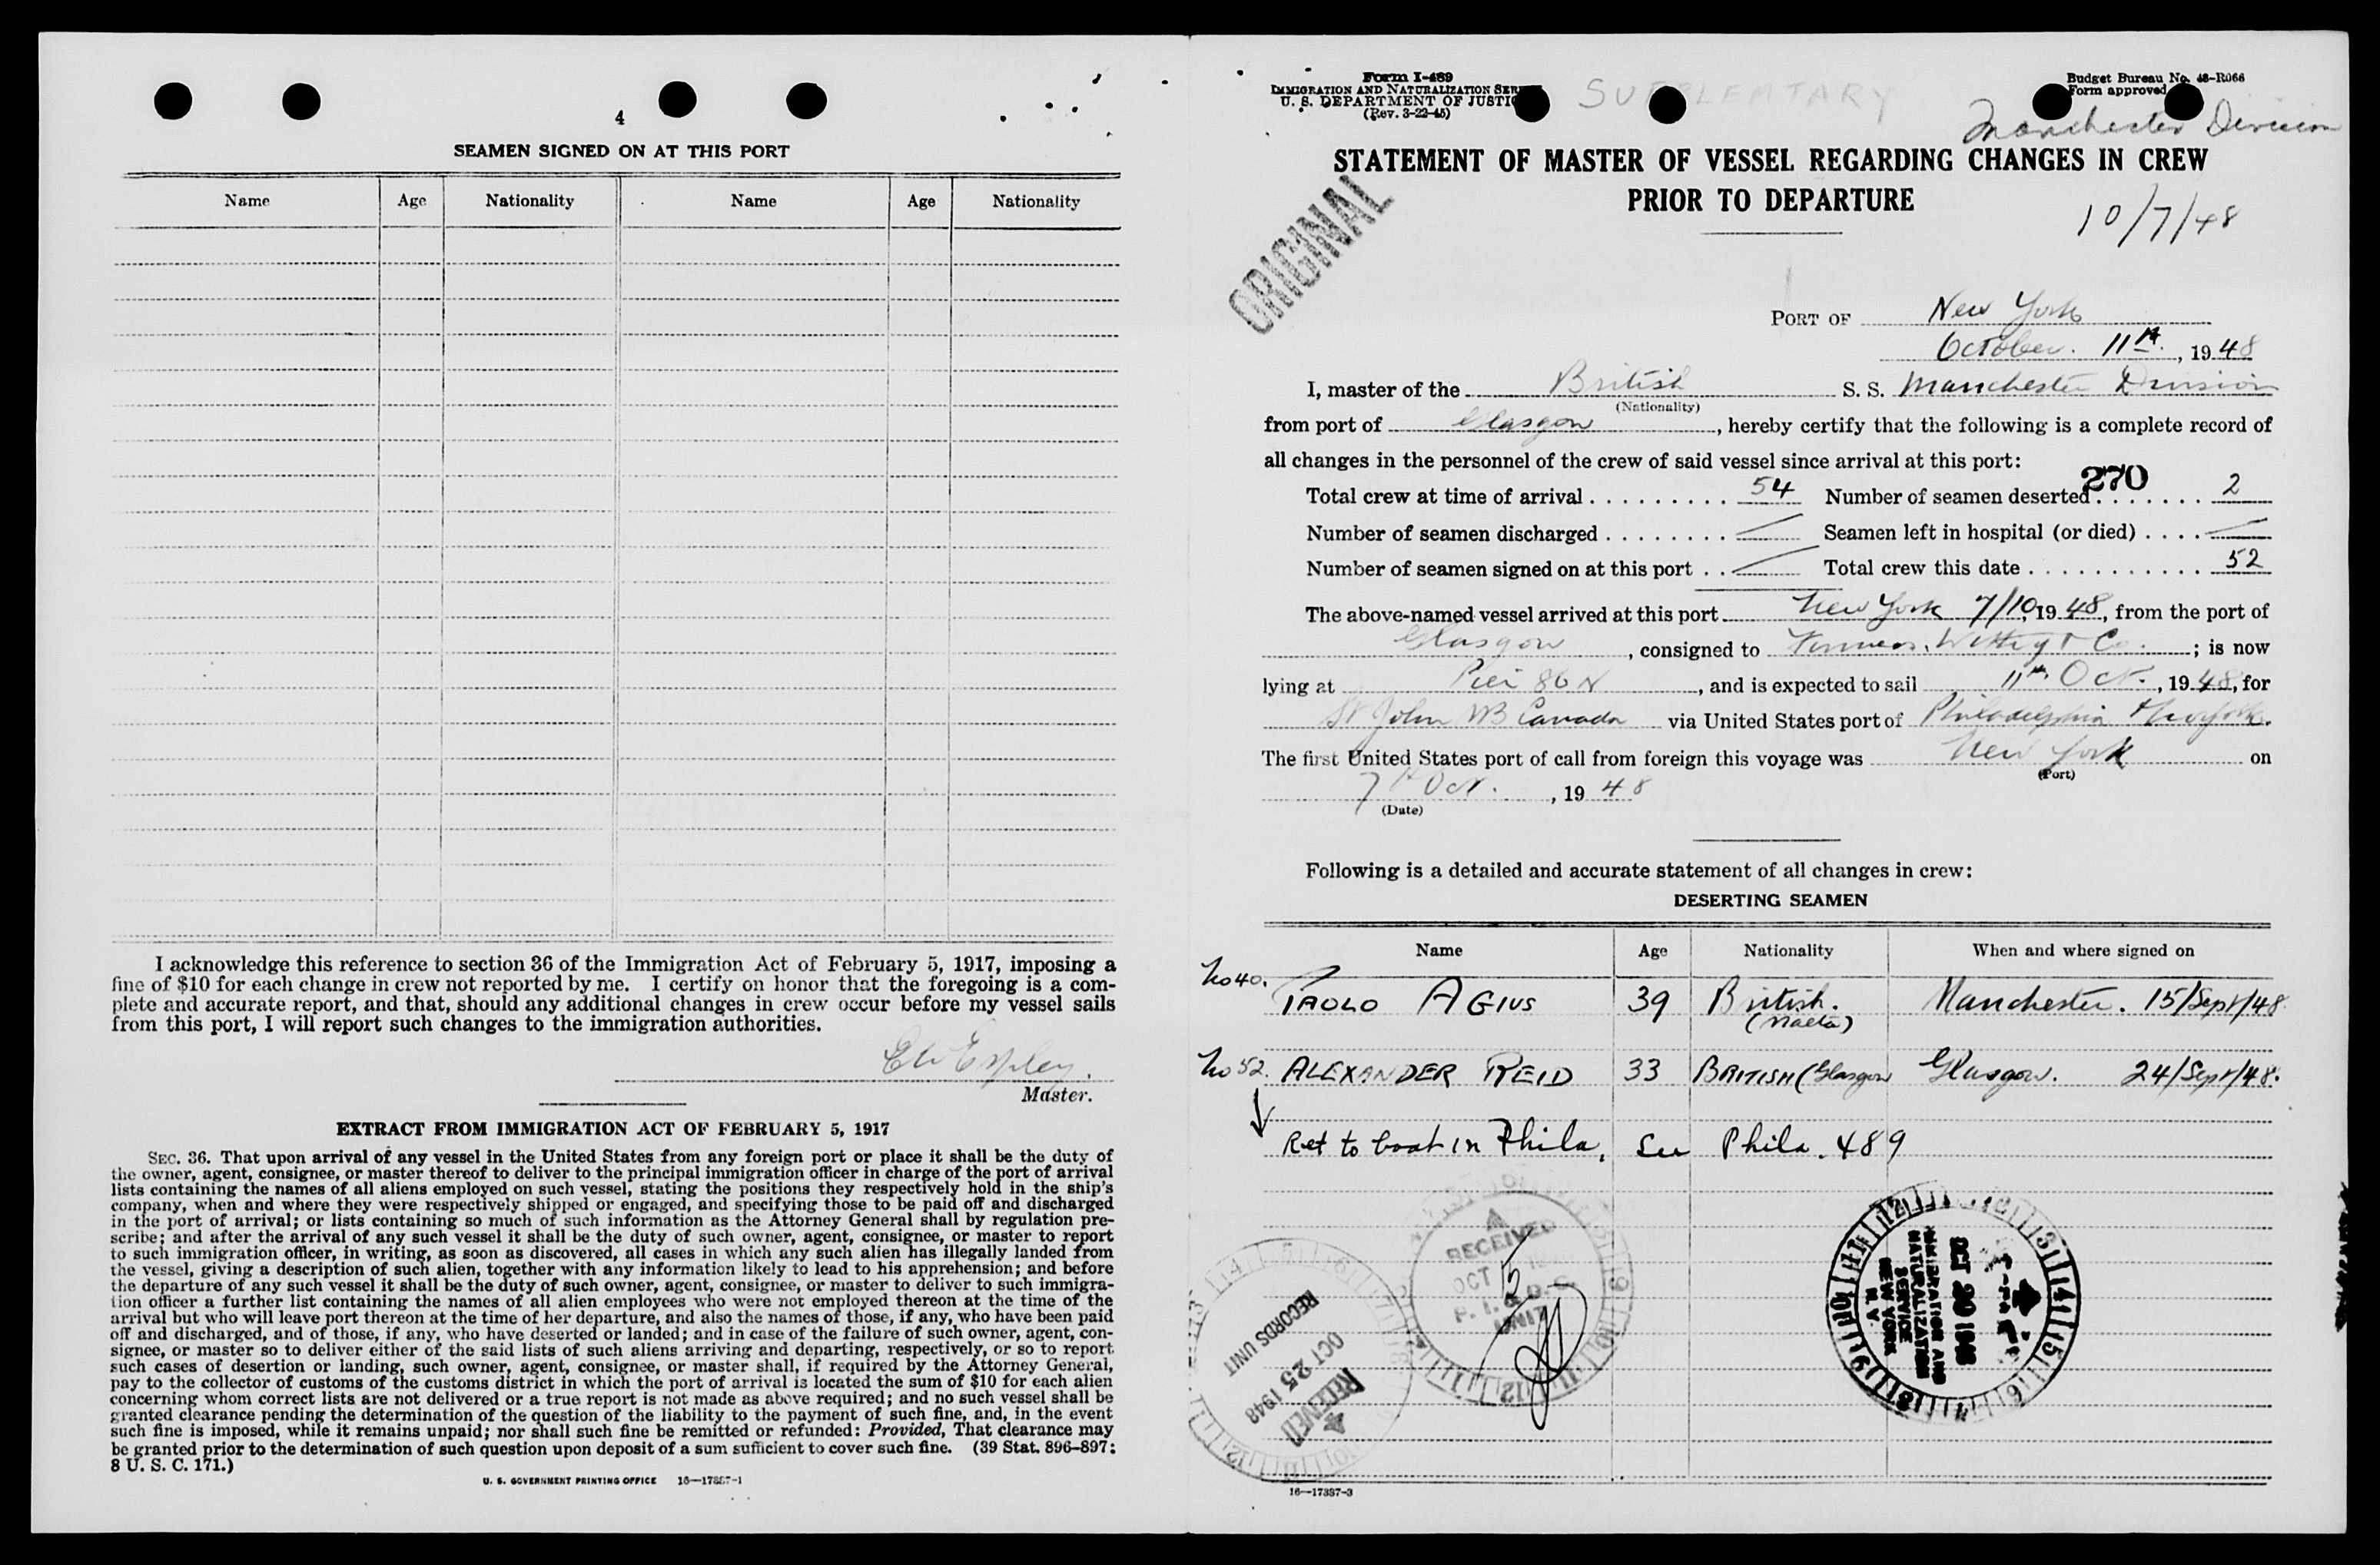 4
SEAMEN SIGNED ON AT THIS PORT
Name Age Nationality Name Age Nationality
I acknowledge this reference to section 36 of the Immigration Act of February 5, 1917, imposing a
fine of $10 for each change in crew not reported by me. I certify on honor that the foregoing is a com-
plete and accurate report, and that, should any additional changes in crew occur before my vessel sails
from this port, I will report such changes to the immigration authorities.
Master.
EXTRACT FROM IMMIGRATION ACT OF FEBRUARY 5, 1917
SEC. 36. That upon arrival of any vessel in the United States from any foreign port or place it shall be the duty of
the owner, agent, consignee, or master thereof to deliver to the principal immigration officer in charge of the port of arrival
lists containing the names of all aliens employed on such vessel, stating the positions they respectively hold in the ship's
company, when and where they were respectively shipped or engaged, and specifying those to be paid off and discharged
in the port of arrival; or lists containing so much of such information as the Attorney General shall by regulation pre-
scribe; and after the arrival of any such vessel it shall be the duty of such owner, agent, consignee, or master to report
to such immigration officer, in writing, as soon as discovered, all cases in which any such alien has illegally landed from
the vessel, giving a description of such alien, together with any information likely to lead to his apprehension; and before
the departure of any such vessel it shall be the duty of such owner, agent, consignee, or master to deliver to such immigra-
tion officer a further list containing the names of all alien employees who were not employed thereon at the time of the
arrival but who will leave port thereon at the time of her departure, and also the names of those, if any, who have been paid
off and discharged, and of those, if any, who have deserted or landed; and in case of the failure of such owner, agent, con-
signee, or master so to deliver either of the said lists of such aliens arriving and departing, respectively, or so to report
such cases of desertion or landing, such owner, agent, consignee, or master shall, if required by the Attorney General,
pay to the collector of customs of the customs district in which the port of arrival is located the sum of $10 for each alien
concerning whom correct lists are not delivered or a true report is not made as above required; and no such vessel shall be
granted clearance pending the determination of the question of the liability to the payment of such fine, and, in the event
such fine is imposed, while it remains unpaid; nor shall such fine be remitted or refunded: Provided, That clearance may
be granted prior to the determination of such question upon deposit of a sum sufficient to cover such fine. (39 Stat. 896–897;
8 U. S. C. 171.)
U. S. GOVERNMENT PRINTING OFFICE
Form I-489
IMMIGRATION AND NATURALIZATION
U. S. DEPARTMENT OF
(Rev. 3-22-45)
SUPPLEMTARY
Budget Bureau No. 43-R066
Form approved
Manchester Division
STATEMENT OF MASTER OF VESSEL REGARDING CHANGES IN CREW
PRIOR TO DEPARTURE
10/7/48
ORIGINAL
PORT OF New York
October. 11th, 1948
I, master of the British S. S. Manchester Division
(Nationality)
from port of Glasgow, hereby certify that the following is a complete record of
all changes in the personnel of the crew of said vessel since arrival at this port:
270
Total crew at time of arrival 54 Number of seamen deserted 2
Number of seamen discharged Seamen left in hospital (or died)
Number of seamen signed on at this port Total crew this date 52
The above-named vessel arrived at this port New York 7/10, 1948, from the port of
Glasgow, consigned to Furness, Withy & Co.; is now
lying at Pier 86 N, and is expected to sail 11th Oct., 1948, for
St John NB Canada via United States port of Philadelphia & Norfolk.
The first United States port of call from foreign this voyage was New York on
(Port)
7th Oct., 1948
(Date)
Following is a detailed and accurate statement of all changes in crew:
DESERTING SEAMEN
Name Age Nationality When and where signed on
No 40. PAOLO AGIUS 39 British. (Malta) Manchester. 15/Sept/48
No 52. ALEXANDER REID 33 BRITISH (Glasgow Glasgow. 24/Sept/48.
Ret to boat in Phila, See Phila. 489
RECEIVED
OCT
UNIT
RECEIVED
OCT 25 1948
RECORDS UNIT
OCT 20 1948
IMMIGRATION AND
NATURALIZATION
SERVICE
NEW YORK
N. Y.
16—17337-3